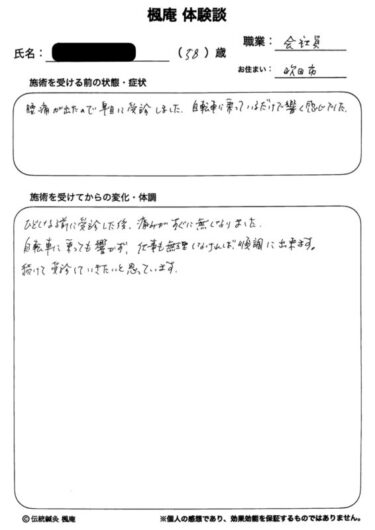 楓庵 体験談
氏名： （58）歳
職業： 会社員
お住まい： 吹田市
施術を受ける前の状態・症状
腰痛が出たので早目に受診しました。自転車に乗っているだけで響く感じでした。
施術を受けてからの変化・体調
ひどくなる前に受診した後、痛みがすぐに無くなりました。
自転車に乗っても響かず、仕事も無理しなければ順調に出来ます。
続けて受診していきたいと思っています。
©伝統鍼灸 楓庵
※個人の感想であり、効果効能を保証するものではありません。